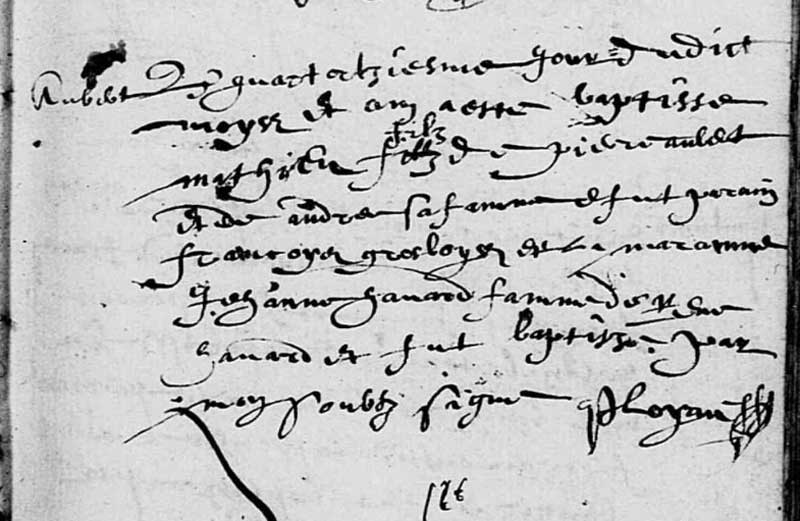 Aubert Le quartorhiesme jour dudict
moys et an a este baptisse
mathieu filz filz de pierre aubert
et de andree sa famme et fut parain
francoys gresloys et la maramme
Jehanne havard famme de Rene
havard et fut baptisse par
moy soubz signe Ployau